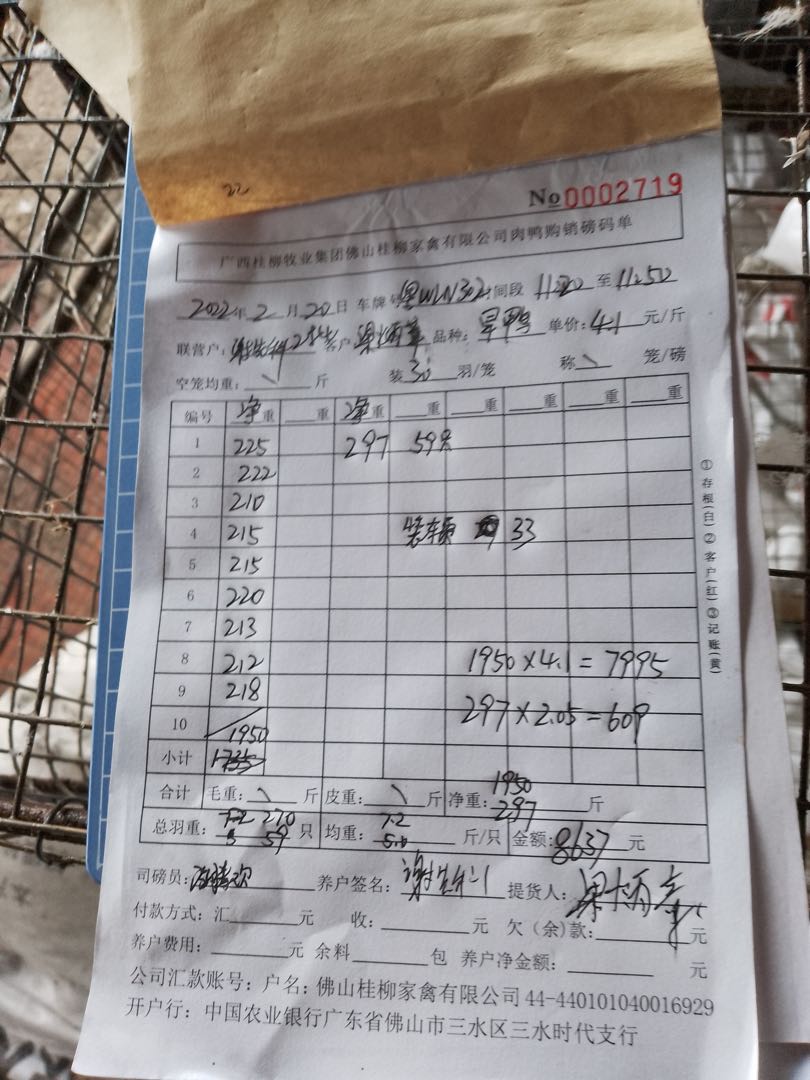 22
No 0002719
广西桂柳牧业集团佛山桂柳家禽有限公司肉鸭购销磅码单
2022年2月20日 车牌号 WLN302 时间段 11:20 至 11:50
联营户: 客户: 品种:旱鸭 单价:4.1元/斤
空笼均重:\斤 装30羽/笼 称\笼/磅
编号 净重 重 净重 重 重 重 重 重
1 225 297 59只
2 222
3 210
4 215 装车费 33
5 215
6 220
7 213
8 212 1950×4.1=7995
9 218 297×2.05=609
10
1950
小计 1735
合计 毛重:\斤 皮重:\斤 净重:1950 297 斤
总羽重: 270 59 只 均重:7.2 5.0 斤/只 金额:8637元
司磅员: 养户签名: 提货人:
付款方式:汇 元 收: 元 欠(余)款: 元
养户费用: 元 余料 包 养户净金额: 元
公司汇款账号:户名:佛山桂柳家禽有限公司 44-440101040016929
开户行:中国农业银行广东省佛山市三水区三水时代支行
①存根(白)②客户(红)③记账(黄)